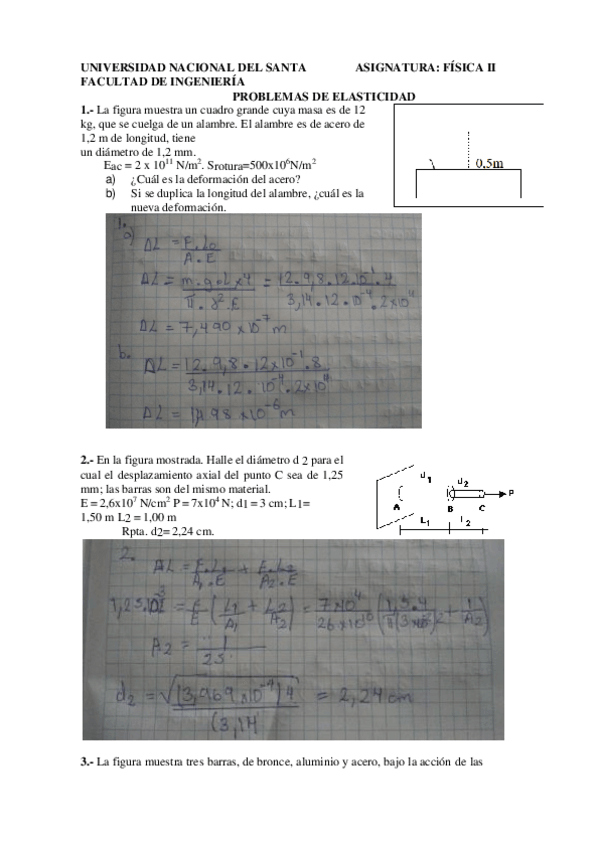 UNIVERSIDAD NACIONAL DEL SANTA ASIGNATURA: FÍSICA II
FACULTAD DE INGENIERÍA
PROBLEMAS DE ELASTICIDAD
1.- La figura muestra un cuadro grande cuya masa es de 12
kg, que se cuelga de un alambre. El alambre es de acero de
1,2 m de longitud, tiene
un diámetro de 1,2 mm.
Eac = 2 x 10¹¹ N/m². Srotura=500x10⁶N/m²
a) ¿Cuál es la deformación del acero?
b) Si se duplica la longitud del alambre, ¿cuál es la
nueva deformación.
0.5m
1.
a) ΔL = F.L₀
A.E
ΔL = m.g.L x 4 = 12.9,8.12.10⁻¹.4
π.
3,14.12.10⁻⁴.2x10
ΔL = 7,490 x 10⁻⁷ m
b. ΔL = 12.9,8.12x10⁻¹.8
3,14.12.10⁻⁴.2x10
ΔL = 14,98 x 10
m
2.- En la figura mostrada. Halle el diámetro d 2 para el
cual el desplazamiento axial del punto C sea de 1,25
mm; las barras son del mismo material.
E = 2,6x10⁷ N/cm² P = 7x10⁴ N; d1 = 3 cm; L1=
1,50 m L2 = 1,00 m
Rpta. d2= 2,24 cm.
d1 d2 P
A B C
L1 l2
2.
ΔL = F.L₁ + F.L₂
A₁.E A₂.E
= F ( L₁ + L₂ ) = 7x10⁴
E A₁ A₂
A₂ = 1
d₂ = √(3,969x10⁻⁴)4 = 2,24 cm
(3,14
3.- La figura muestra tres barras, de bronce, aluminio y acero, bajo la acción de las